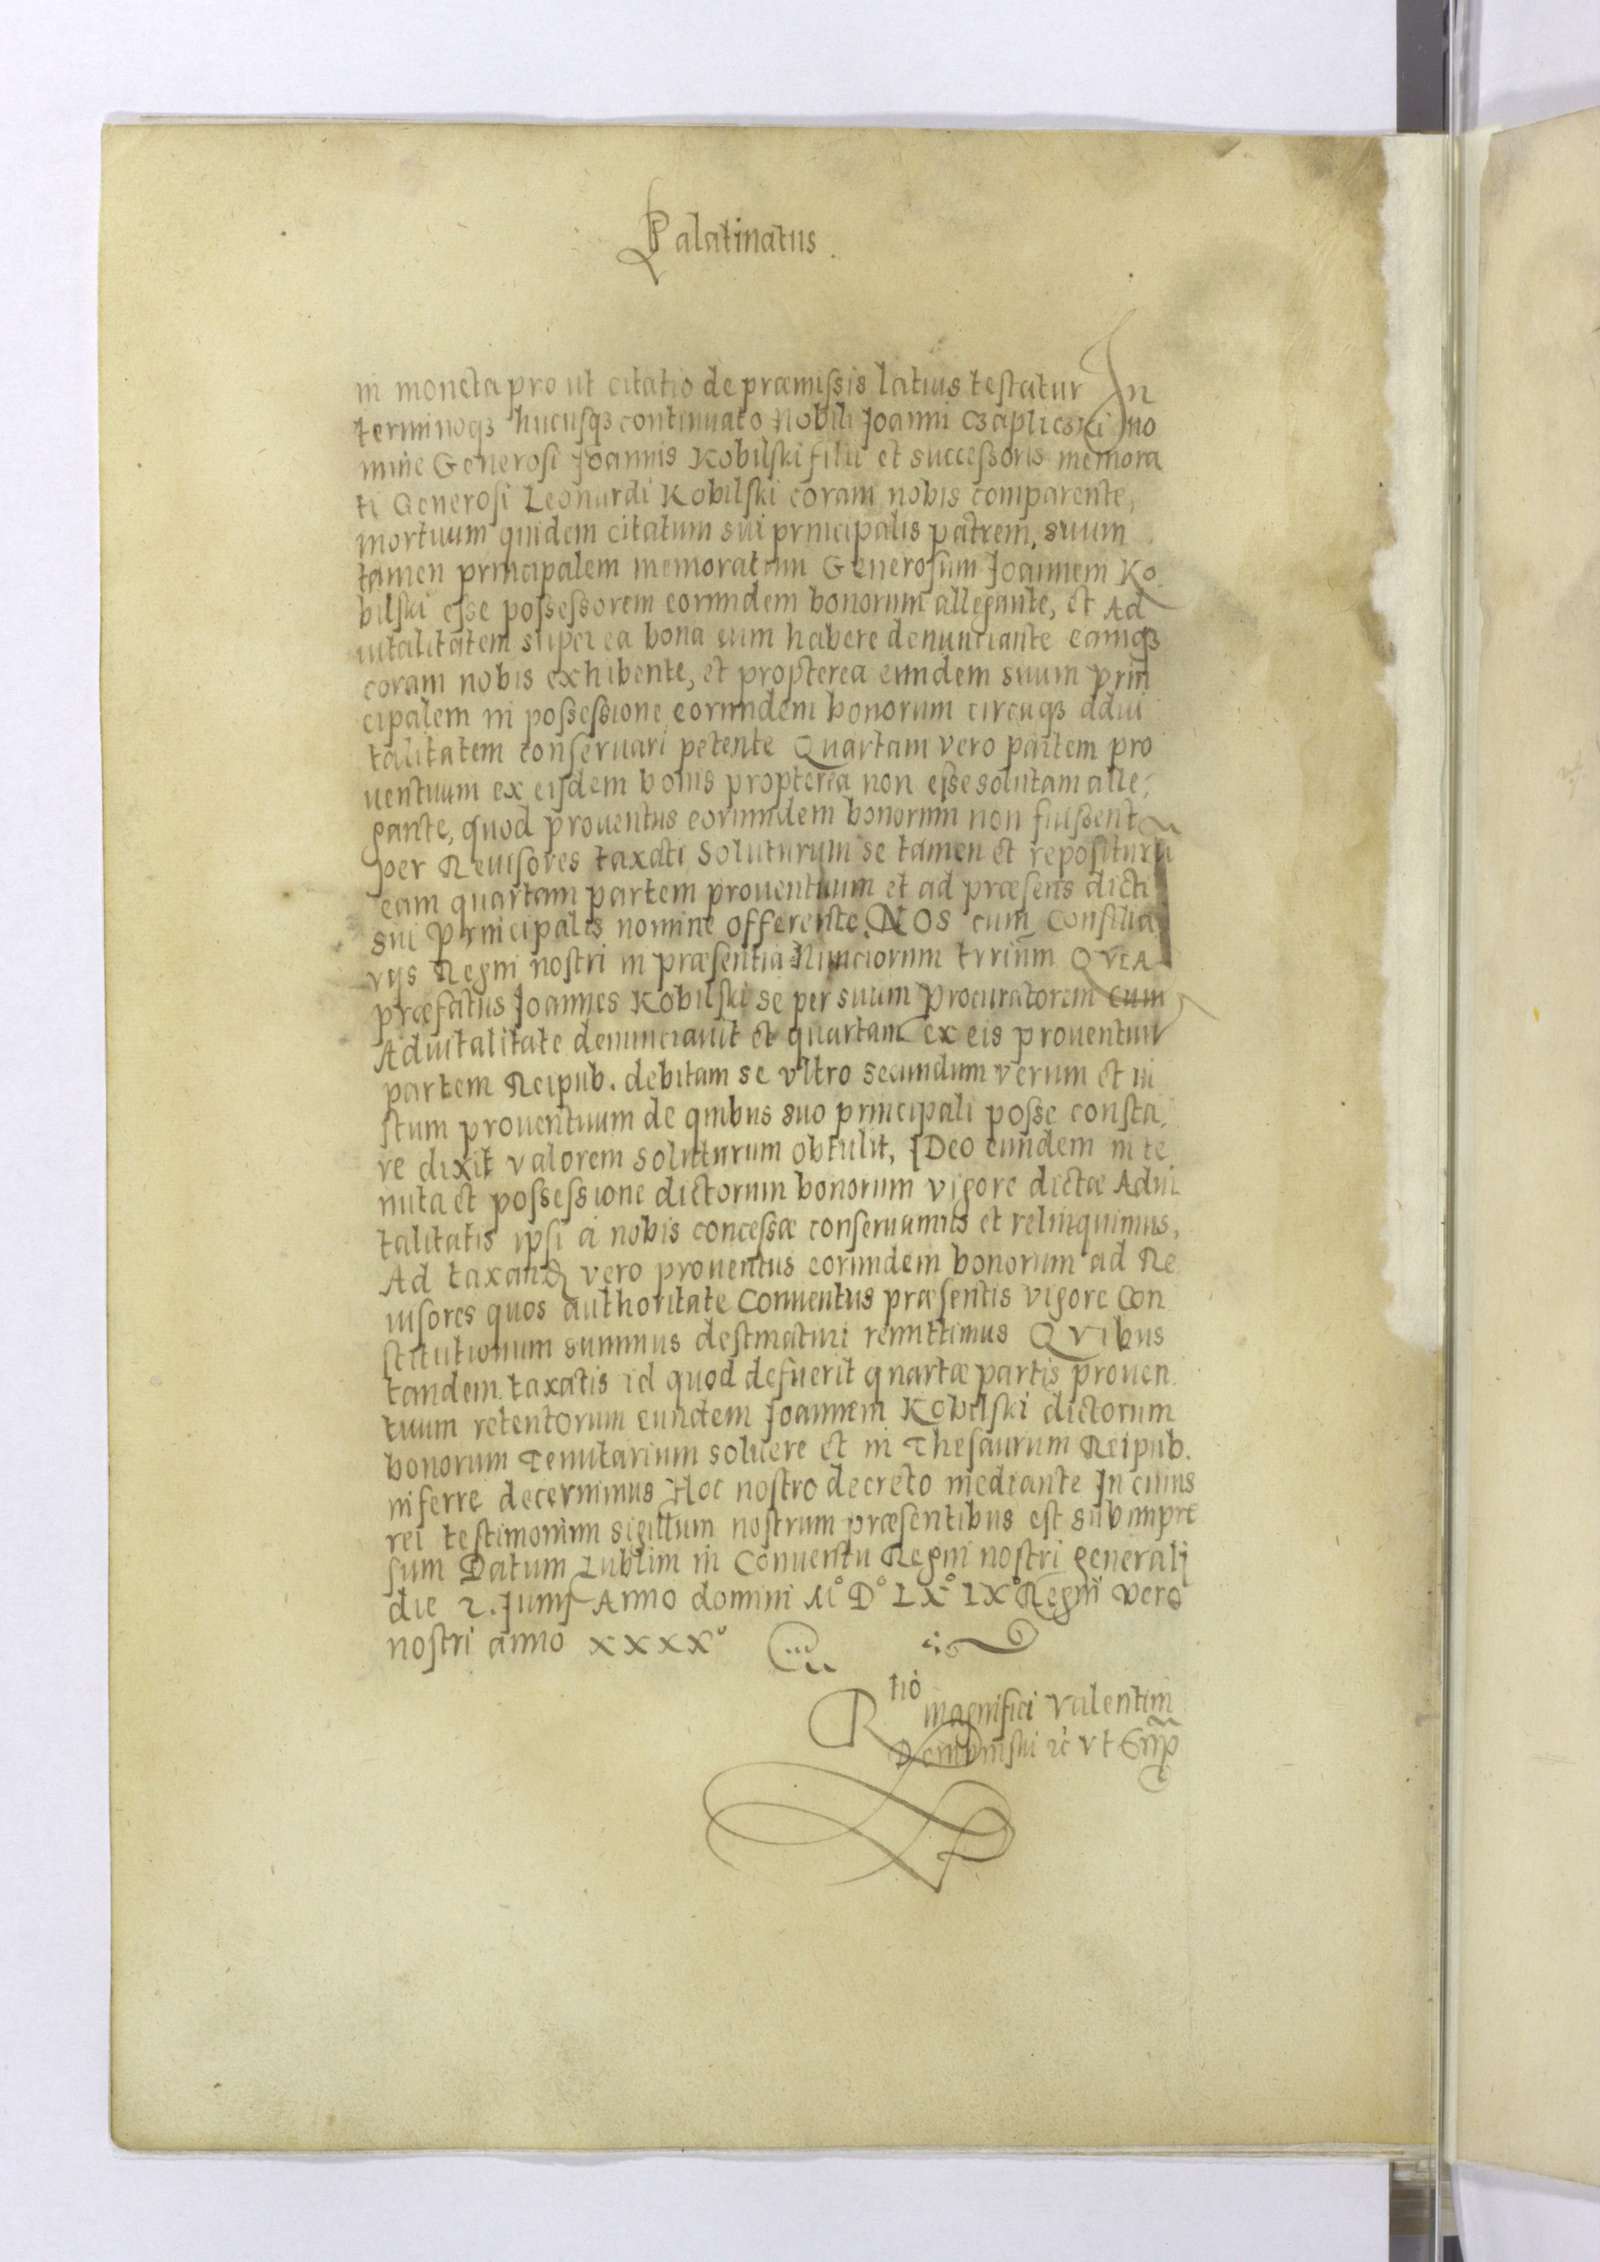 Palatinatus
in moneta pro ut citatio de præmissis latius testatur In
terminoqꝫ hucusqꝫ continuato Nobili Joanni Czaplicski no
mine Generosi Joannis Kobilski filii et successoris memora
ti Generosi Leonardi Kobilski coram nobis comparente,
mortuum quidem citatum sui principalis patrem, suum
tamen principalem memoratum Generosum Joannem Ko
bilski esse possessorem eorundem bonorum allegante, et Ad
uitalitatem super ea bona eum habere denunciante eamqꝫ
coram nobis exhibente, et propterea eundem suum prin
cipalem in possessione eorundem bonorum circaqꝫ adui
talitatem conseruari petente Quartam vero partem pro
uentuum ex eisdem bonis propterea non esse solutam alle,
gante, quod prouentus eorundem bonorum non fuissent
per Reuisores taxati Soluturum se tamen et repositurũ
eam quartam partem prouentuum et ad præsens dicti
sui Principalis nomine offerente. NOS cum Consilia
rijs Regni nostri in præsentia Nunciorum trrium QVIA
præfatus Joannes Kobilski se per suum Procuratorem cum
Aduitalitate denunciauit et quartam ex eis prouentuũ
partem Reipub. debitam se vltro secundum verum et iu
stum prouentuum de quibus suo principali posse consta,
re dixit valorem soluturum obtulit, IDeo eundem in te
nuta et possessione dictorum bonorum vigore dictæ Adui
talitatis ipsi a nobis concessæ conseruamus et relinquimus,
Ad taxandꝫ vero prouentus eorundem bonorum ad Re
uisores quos authoritate Conuentus præsentis vigore Con
stitutionum sumus destinaturi remittimus QVibus
tandem taxatis id quod defuerit quartæ partis prouen
tuum retentorum eundem Joannem Kobilski dictorum
bonorum Tenutarium soluere et in Thesaurum Reipub.
inferre decernimus Hoc nostro decreto mediante In cuius
rei testimonium sigillum nostrum præsentibus est subimpre
sum Datum Lublini in Conuentu Regni nostri generali
die 2. Junij Anno domini M° D° LX° IX° Regni vero
nostri anno XXXX°
Rtio magnifici Valentini
Dembinski ꝛc vt Sup